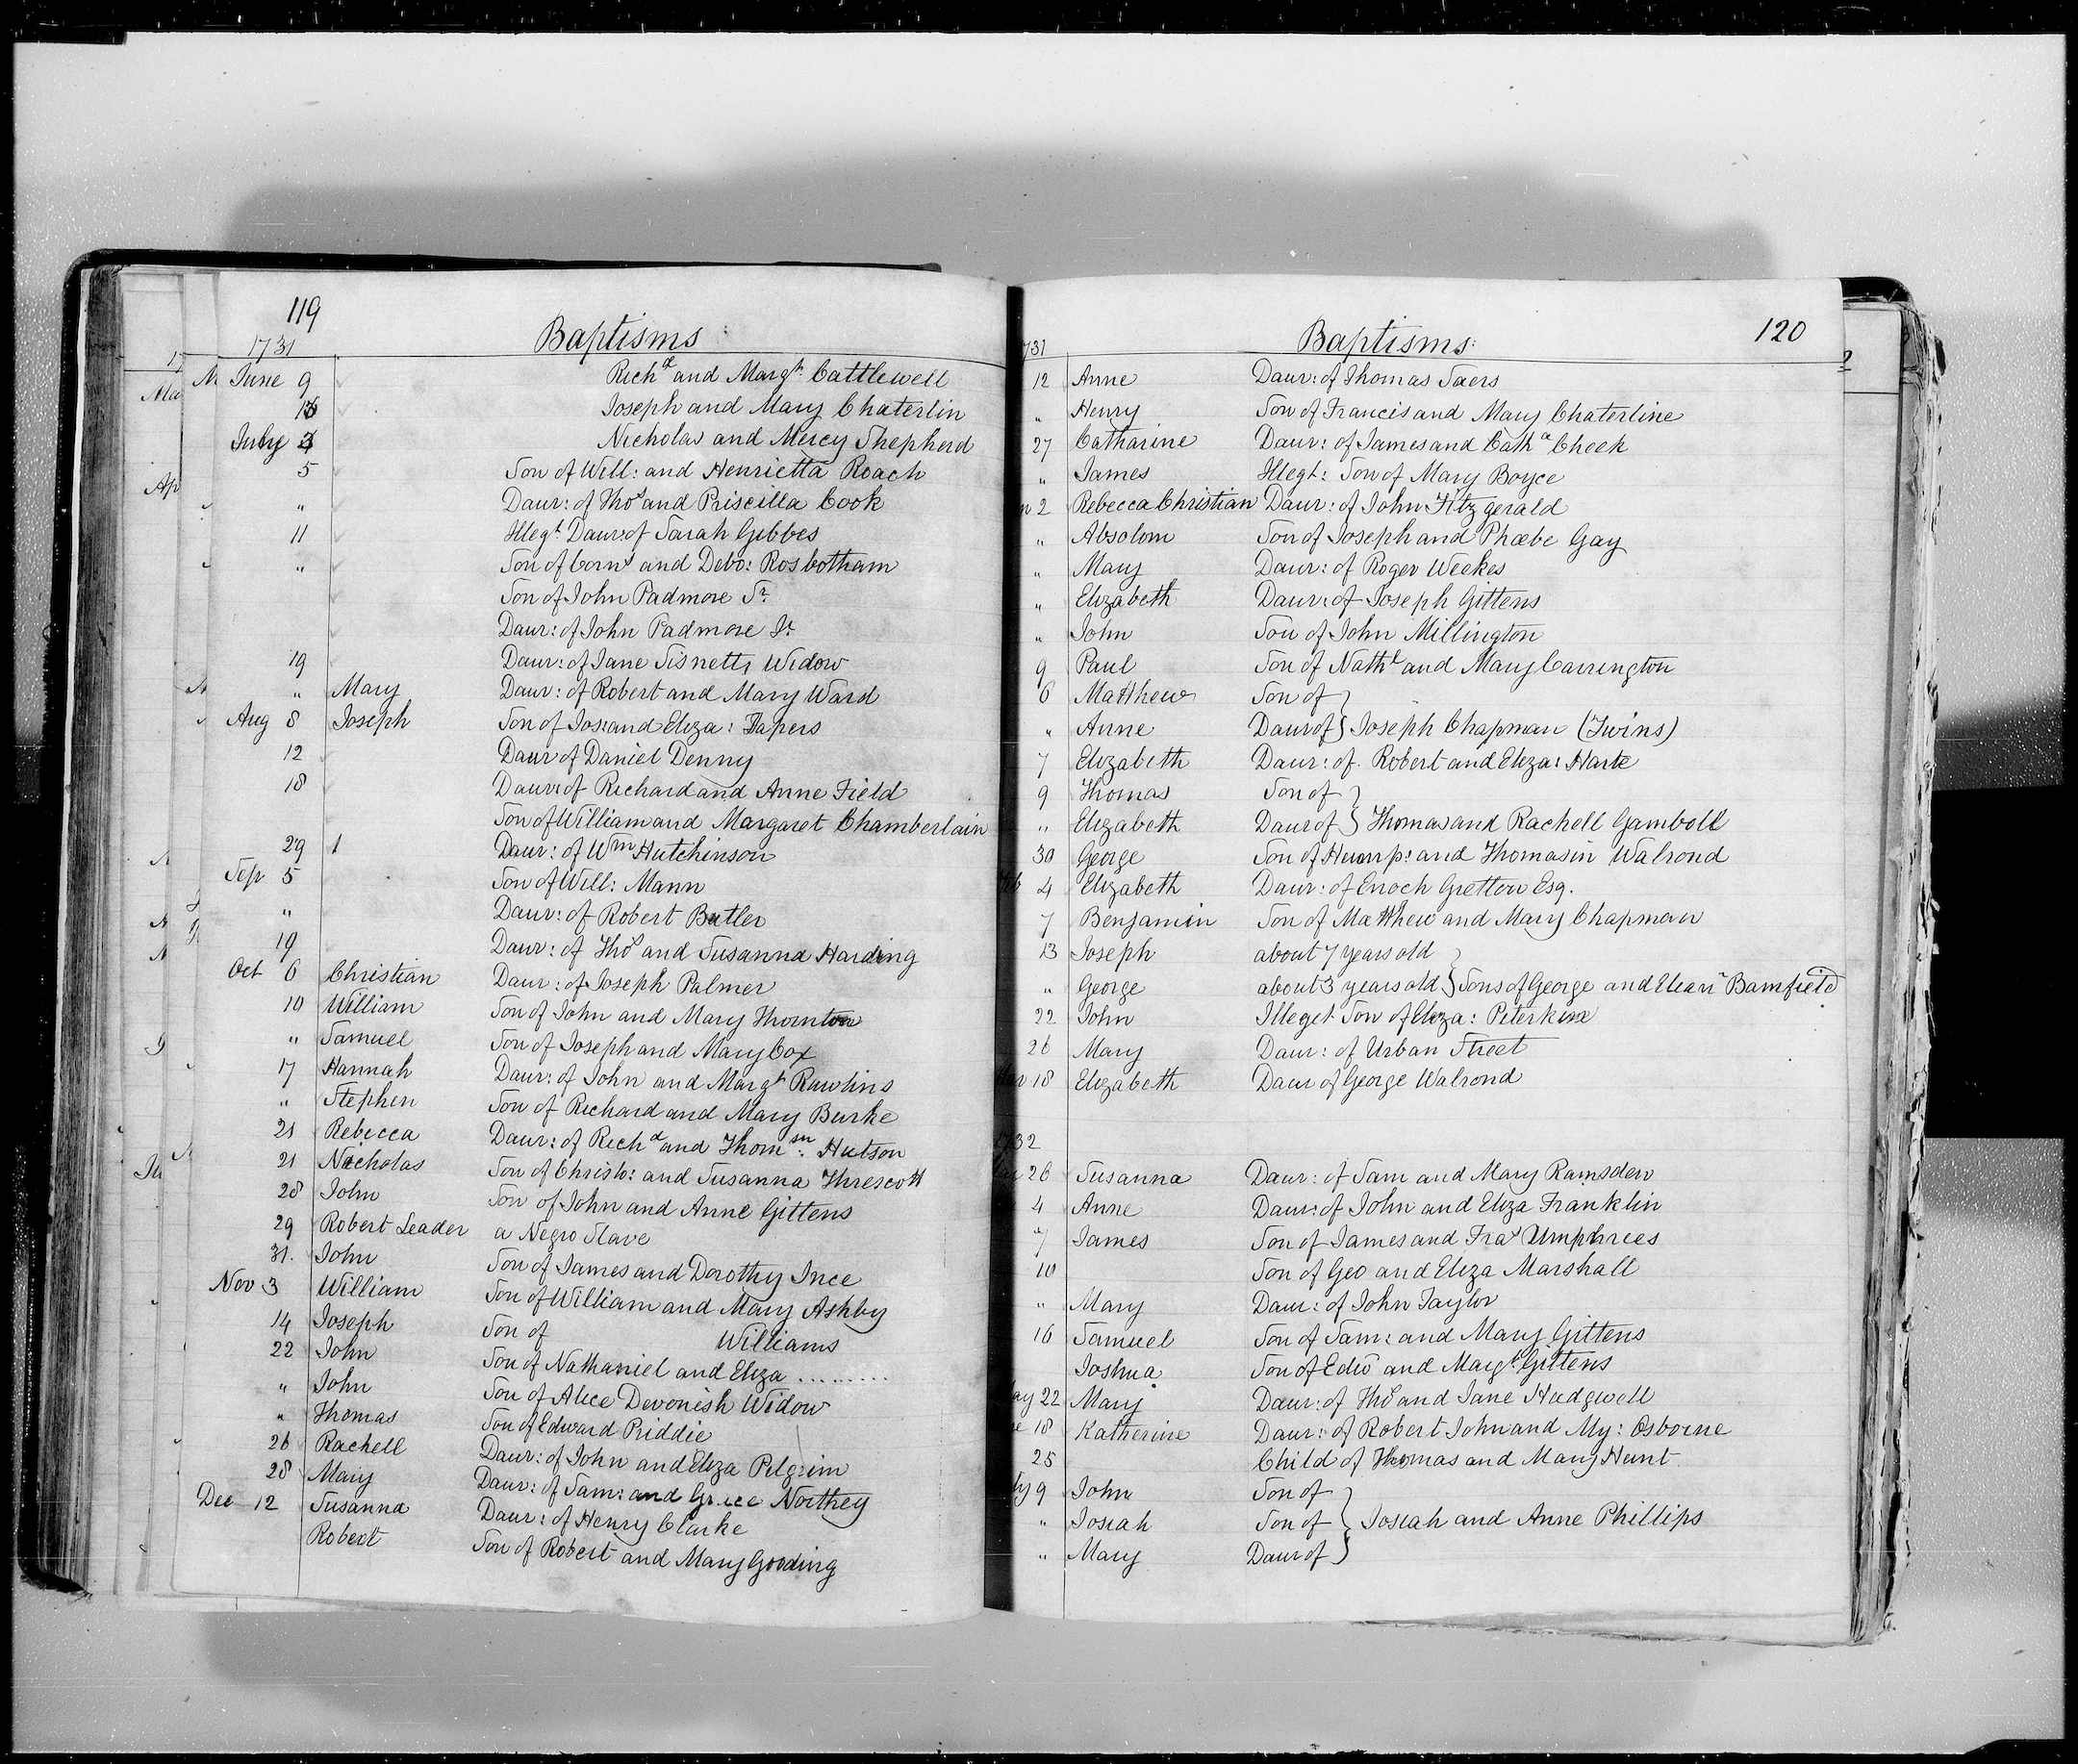 119
Baptisms
1731
June 9 Richd and Margt Cattlewell
Joseph and Mary Chaterlin
July Nicholas and Mercy Shepherd
5 Son of Will: and Henrietta Roach
" Daur: of Thos and Priscilla Cook
11 Illegt Daur: of Sarah Gibbes
" Son of Corns and Debo: Rosbotham
Son of John Padmore Sr
Daur: of John Padmore Jr
19 Daur: of Jane Widow
" Mary Daur: of Robert and Mary Ward
Aug 8 Joseph Son of Jos: and Eliza:
12 Daur of Daniel Denny
18 Daur: of Richard and Anne Field
Son of William and Margaret Chamberlain
29 Daur: of Wm Hutchinson
Sep 5 Son of Will: Mann
" Daur: of Robert Butler
19 Daur: of Thos and Susanna Harding
Oct 6 Christian Daur: of Joseph Palmer
10 William Son of John and Mary Thornton
" Samuel Son of Joseph and Mary Cox
17 Hannah Daur: of John and Margt Rawlins
" Stephen Son of Richard and Mary Burke
21 Rebecca Daur: of Richd and Thomsn: Hutson
21 Nicholas Son of Christo: and Susanna Threscott
28 John Son of John and Anne Gittens
29 Robert Leader a Negro Slave
31. John Son of James and Dorothy Ince
Nov 3 William Son of William and Mary Ashby
14 Joseph Son of Williams
22 John Son of Nathaniel and Eliza .........
" John Son of Alice Devonish Widow
" Thomas Son of Edward Priddie
26 Rachell Daur: of John and Eliza Pilgrim
28 Mary Daur: of Sam: and Grace Northey
Dec 12 Susanna Daur: of Henry Clarke
Robert Son of Robert and Mary Gooding
120
Baptisms:
731
12 Anne Daur: of Thomas Saers
" Henry Son of Francis and Mary Chaterline
27 Catharine Daur: of James and Catha Cheek
" James Illegt: Son of Mary Boyce
n 2 Rebecca Christian Daur: of John Fitzgerald
" Absolom Son of Joseph and Phœbe Gay
" Mary Daur: of Roger Weekes
" Elizabeth Daur: of Joseph Gittens
" John Son of John Millington
9 Paul Son of Nathl and Mary Carrington
6 Matthew Son of
" Anne Daur of } Joseph Chapman (Twins)
7 Elizabeth Daur: of Robert and Eliza: Harte
9 Thomas Son of
" Elizabeth Daur of } Thomas and Rachell Gamboll
30 George Son of Hump: and Thomasin Walrond
4 Elizabeth Daur: of Enoch Gretton Esq.
7 Benjamin Son of Matthew and Mary Chapman
13 Joseph about 7 years old
" George about 3 years old } Sons of George and Elean Bamfield
22 John Illeget Son of Eliza: Peterkin
26 Mary Daur: of Urban Street
18 Elizabeth Daur of George Walrond
32
26 Susanna Daur: of Sam and Mary Ramsden
4 Anne Daur: of John and Eliza Franklin
7 James Son of James and Fras Umphries
10 Son of Geo and Eliza Marshall
" Mary Daur: of John Taylor
16 Samuel Son of Sam: and Mary Gittens
Joshua Son of Edw and Margt Gittens
ay 22 Mary Daur: of Thos and Jane Hudgwell
e 18 Katherine Daur: of Robert John and My: Osborne
25 Child of Thomas and Mary Hunt
ly 9 John Son of
" Josiah Son of } Josiah and Anne Phillips
" Mary Daur of